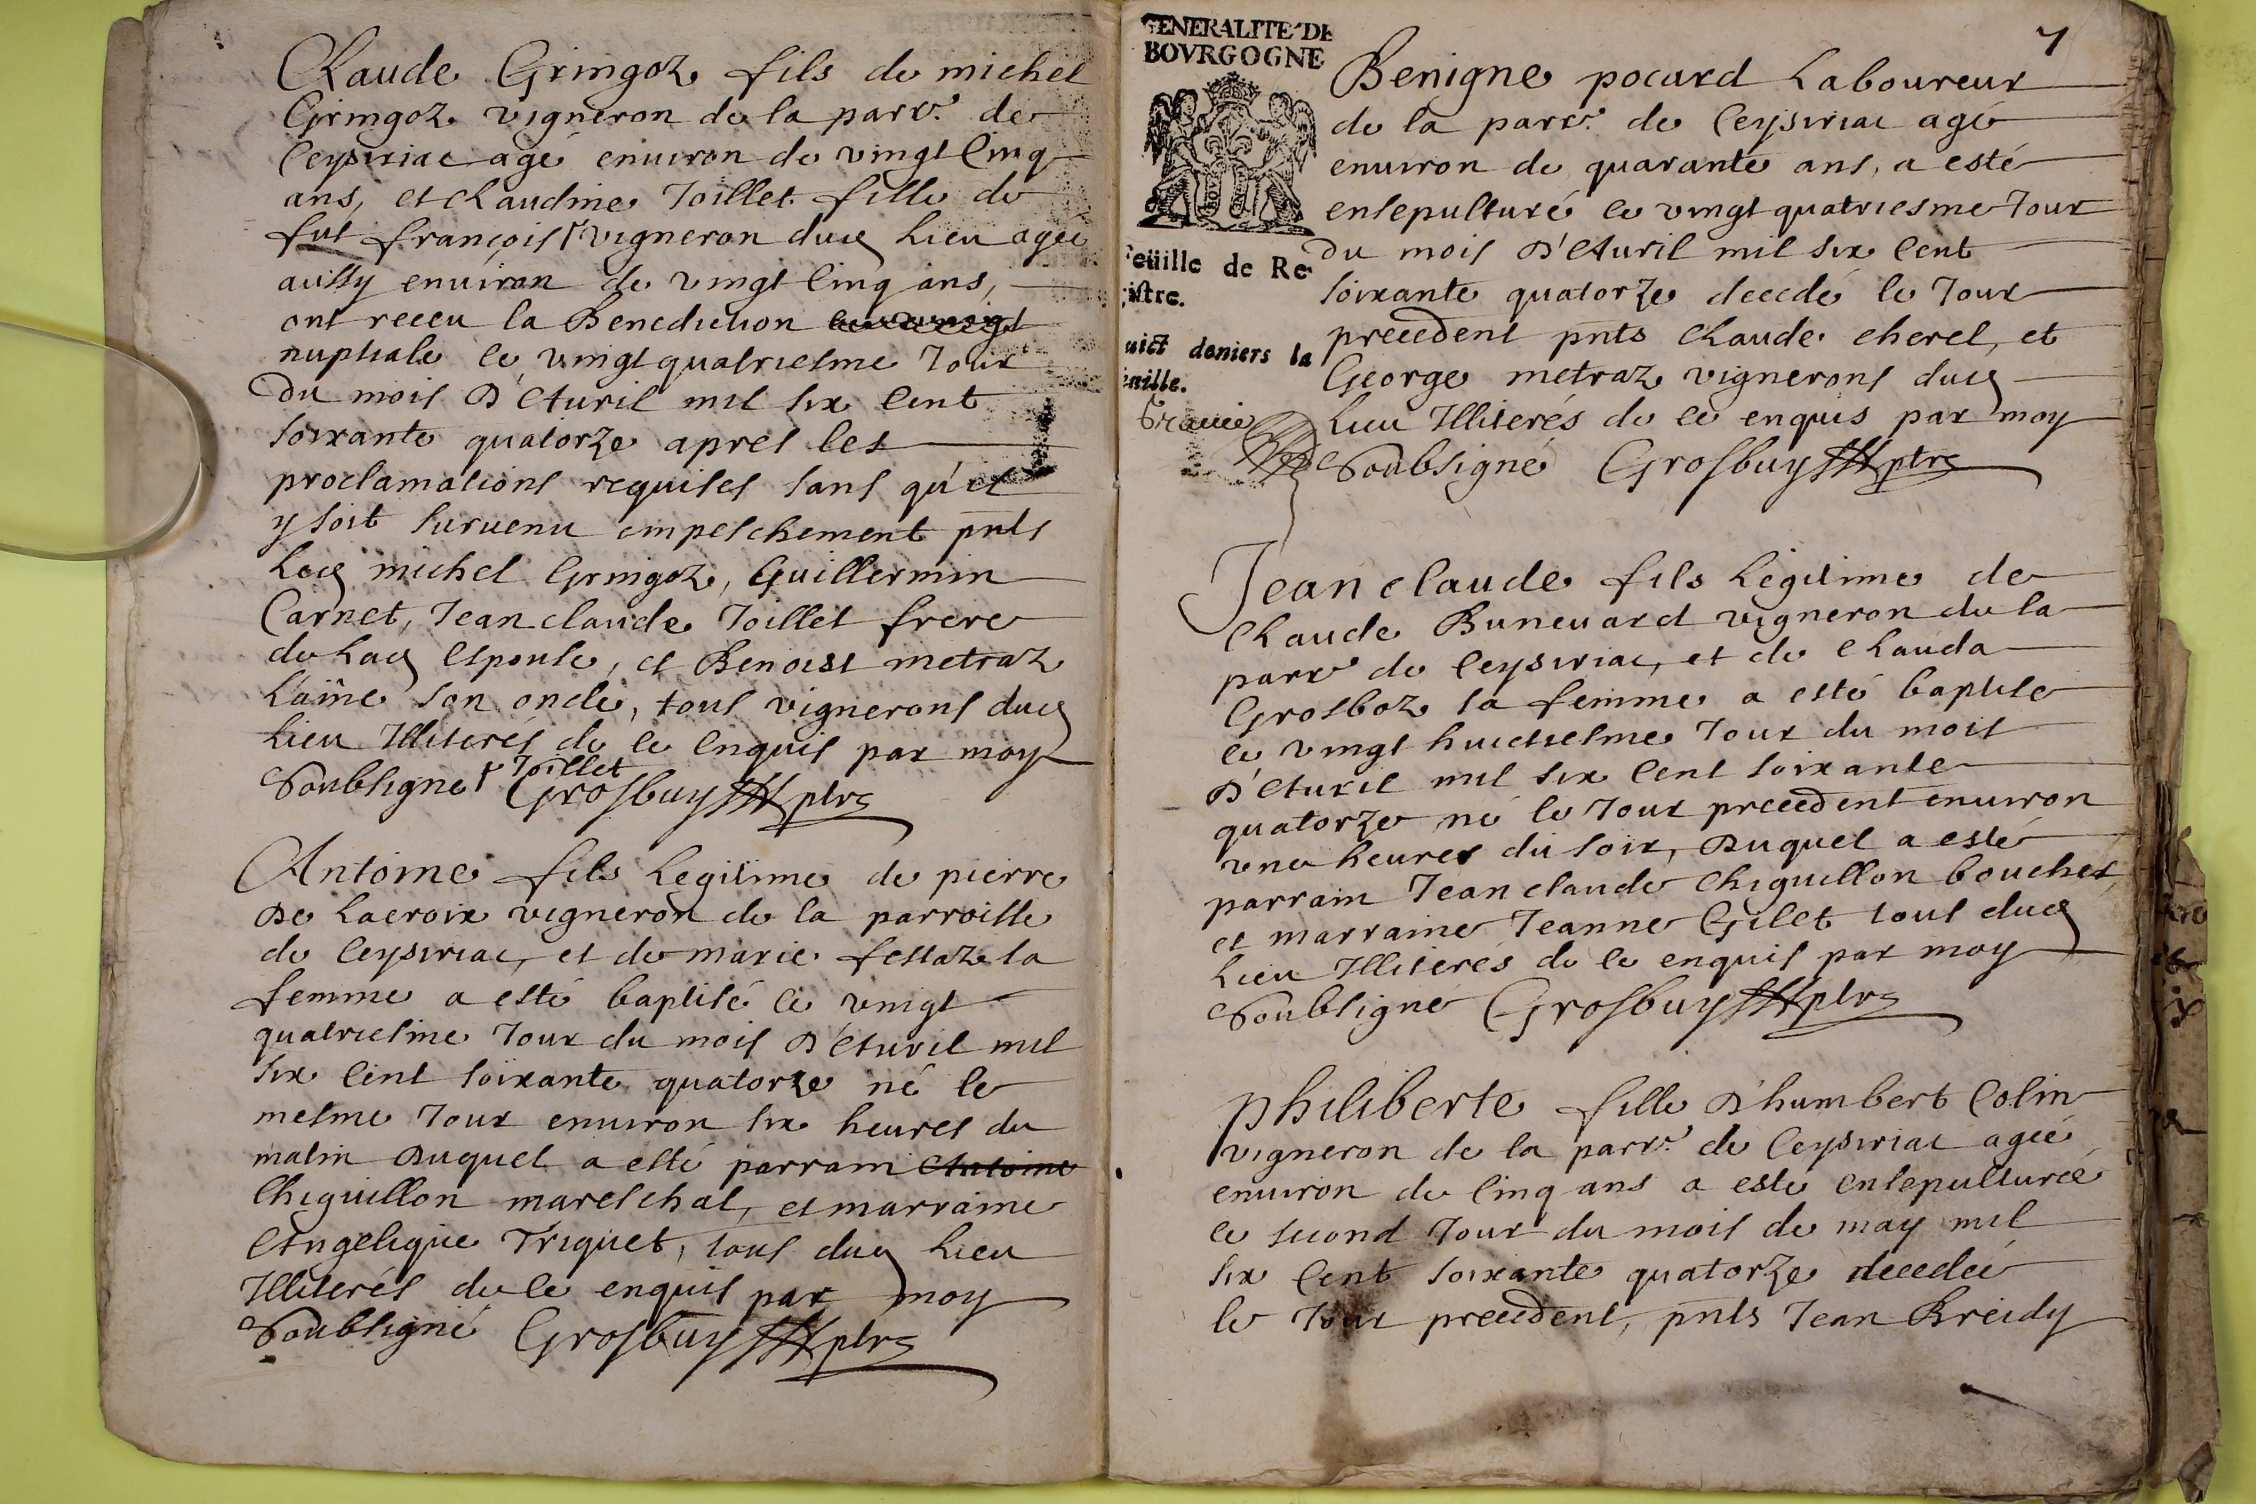 Claude Gringoz fils de michel
Gringoz vigneron de la parr.e de
Ceysiriac agé enuiron de vingt cinq
ans, et Claudine Joillet fille de
fut françois vigneron dud lieu agée
aussy enuiron de vingt cinq ans,
ont receu la Benediction
nuptiale le vingt quatriesme Jour
du mois D'Auril mil six cent
soixante quatorze apres les
proclamations requises sans qu'il
y soit suruenu empeschement pnts
led michel Gringoz, Guillermin
Carnet, Jean claude Joillet frere
de lad espouse, et Benoist metraz
l'aîne son oncle, tous vignerons dud
lieu Illiterés de ce enquis par moy
Soubsigné Joillet
Grosbuy ptre
Antoine fils legitime de pierre
De Lacroix vigneron de la parroisse
de Ceysiriac, et de marie festaz sa
femme a esté baptisé le vingt
quatriesme Jour du mois D'Auril mil
six cent soixante quatorze né le
mesme Jour enuiron six heures du
matin Duquel a esté parrain Antoine
Chiguillon mareschal, et marraine
Angelique Triquet, tous dud lieu
Illiterés de ce enquis par moy
Soubsigné Grosbuy ptre
7
GENERALITE DE
BOVRGOGNE
Feüille de Re-
gistre.
huict deniers la
feuille.
Benigne pocard Laboureur
de la parr.e de Ceysiriac agé
enuiron de quarante ans, a esté
ensepulturé le vingt quatriesme Jour
du mois D'Auril mil six cent
soixante quatorze decedé le Jour
precedent pnts Claude cherel, et
George metraz vignerons dud
lieu Illiterés de ce enquis par moy
Soubsigné Grosbuy ptre
Jean claude fils legitime de
Claude Buneuard vigneron de la
parr.e de Ceysiriac, et de Clauda
Grosboz sa femme a esté baptisé
le vingt huictiesme Jour du mois
D'Auril mil six cent soixante
quatorze né le Jour precedent enuiron
une heure du soir, Duquel a esté
parrain Jean claude Chiguillon boucher,
et marraine Jeanne Gilet tous dud
lieu Illiterés de ce enquis par moy
Soubsigné Grosbuy ptre
philiberte fille D'humbert Colin
vigneron de la parr.e de Ceysiriac agée
enuiron de cinq ans a esté ensepulturée
le second Jour du mois de may mil
six cent soixante quatorze decedée
le Jour precedent, pnts Jean Breidy